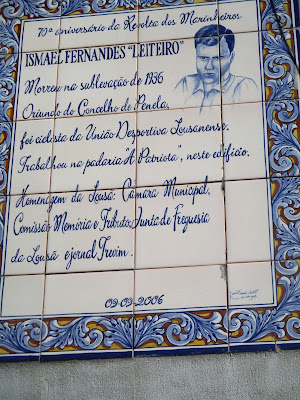 70º aniversário da Revolta dos Marinheiros
ISMAEL FERNANDES "LEITEIRO"
Morreu na sublevação de 1936
Oriundo do Concelho de Penela,
foi ciclista da União Desportiva Lousanense.
Trabalhou na padaria "A Patriota", neste edifício.
Homenagem da Lousã: Câmara Municipal,
Comissão Memória e Tributo, Junta de Freguesia
da Lousã e jornal Trevim.
09-09-2006